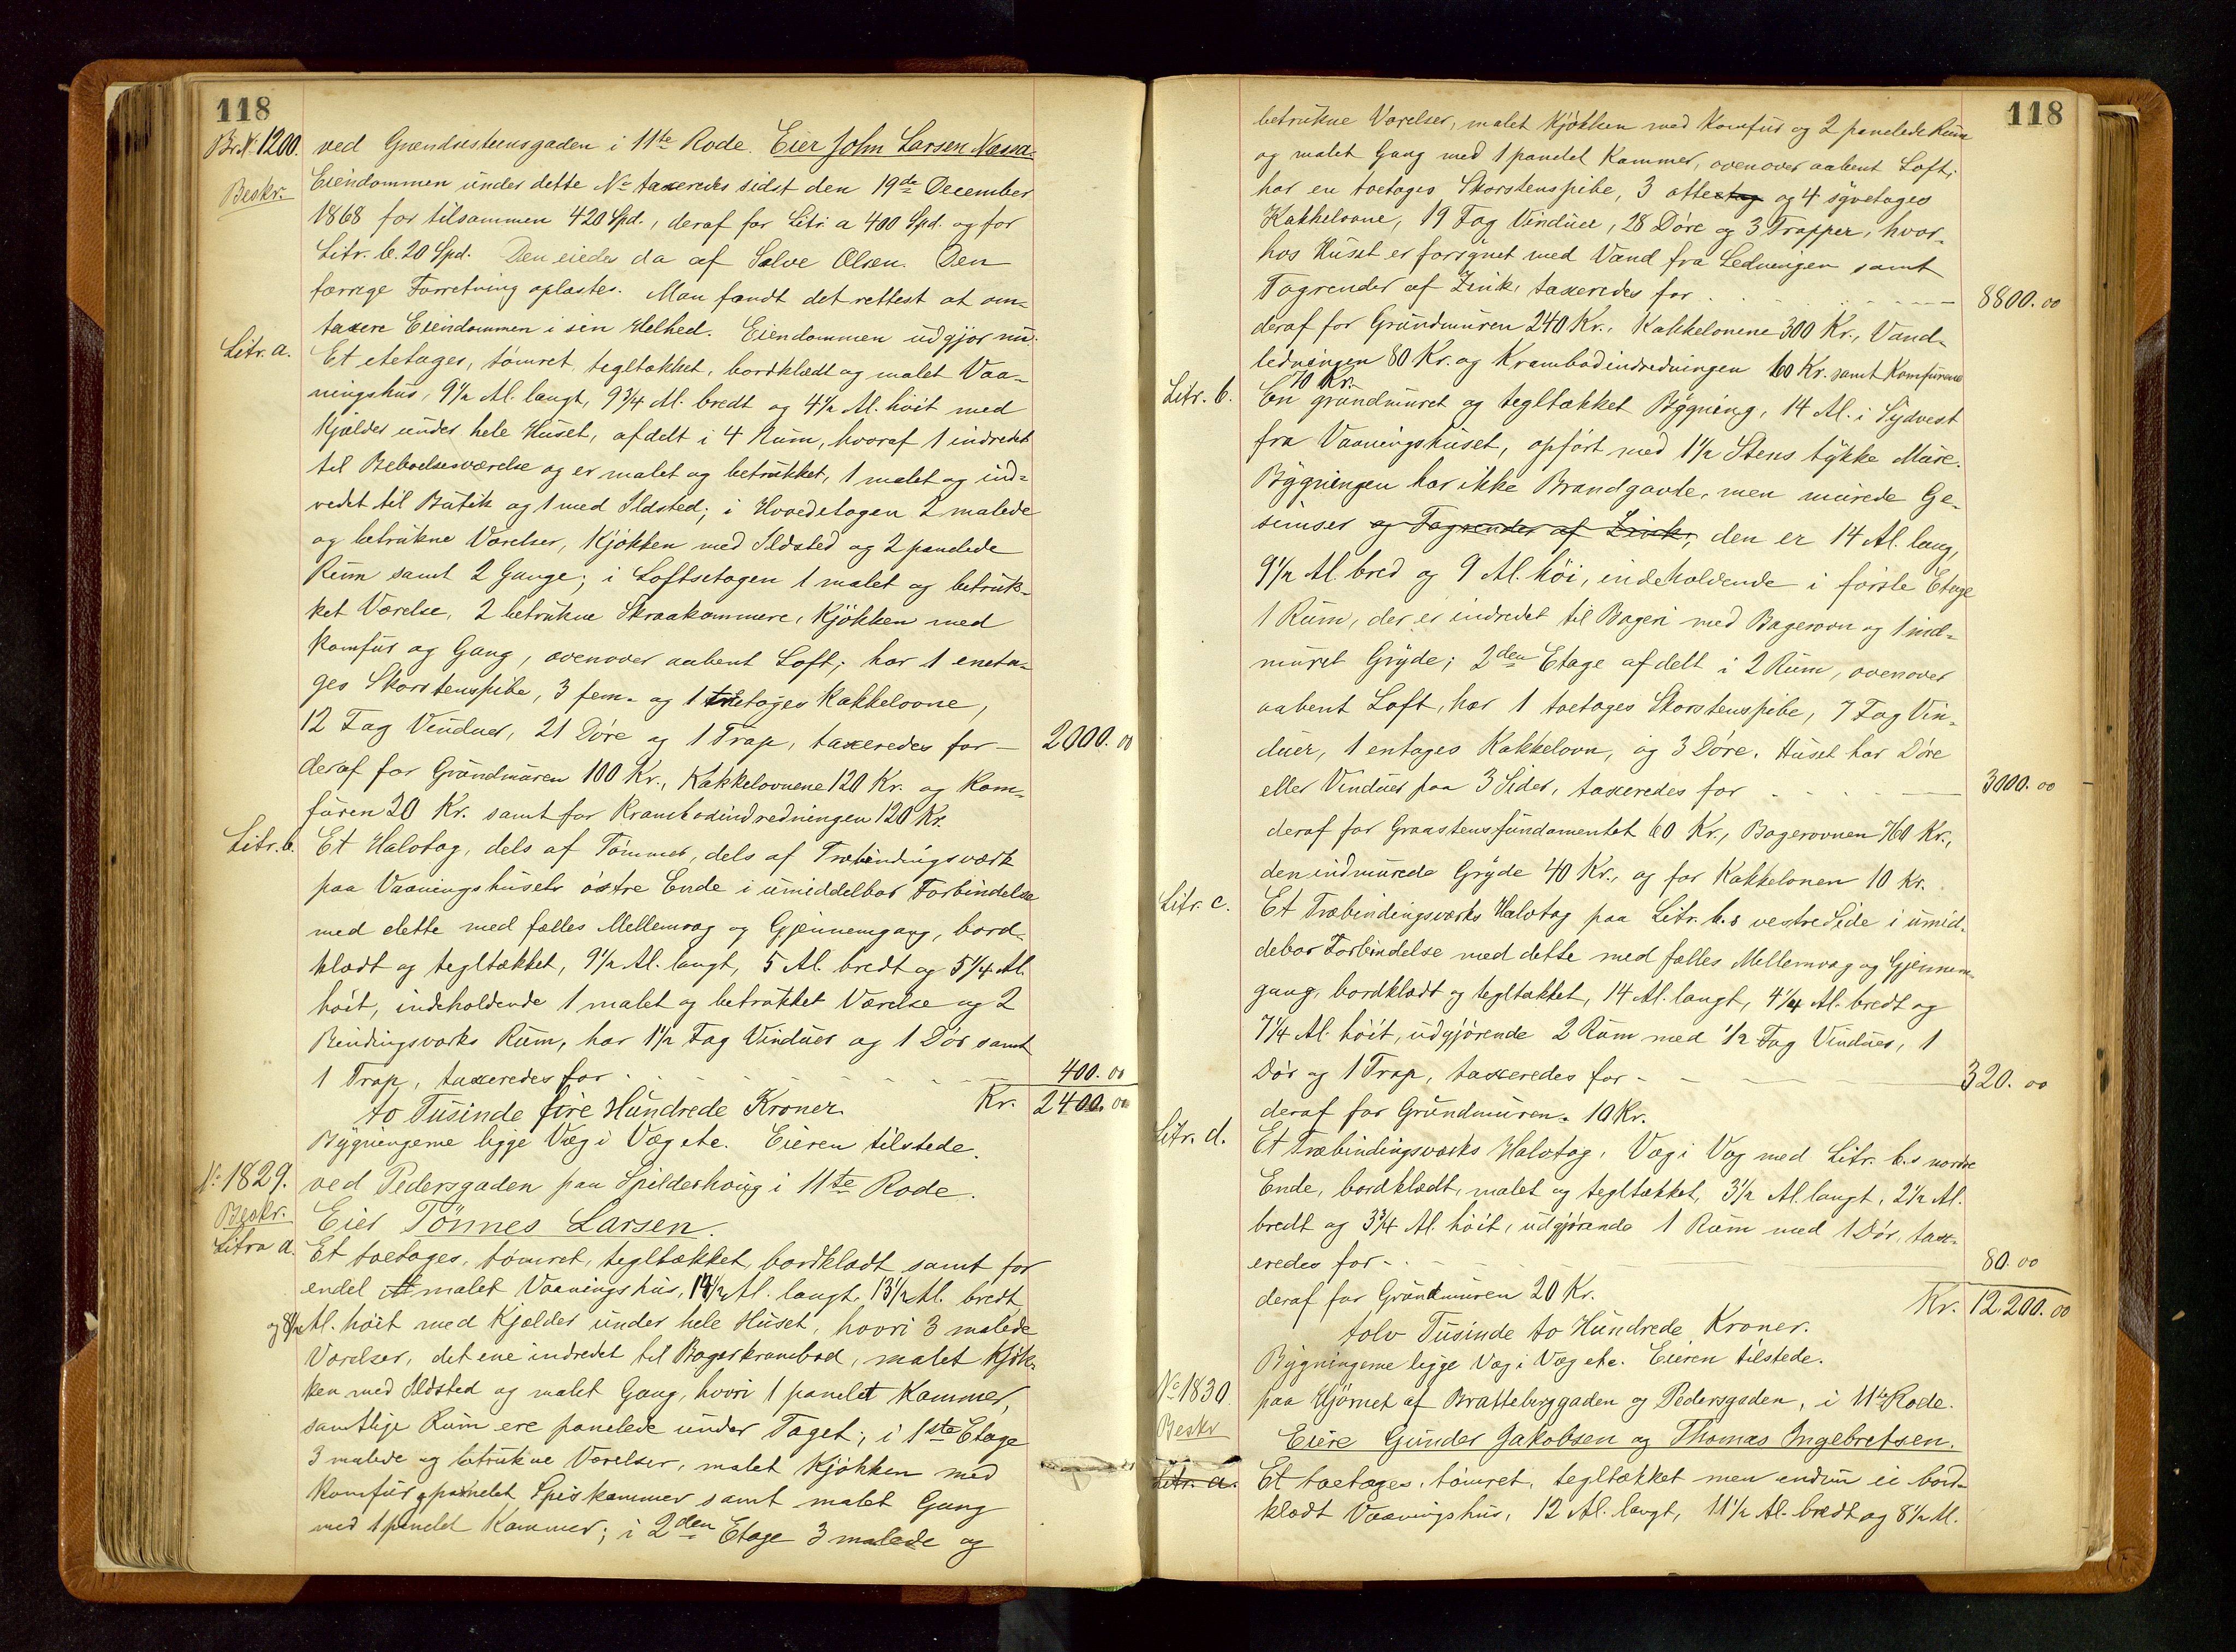 118
Br.N. 1200. ved Grændsesteensgaden i 11te Rode. Eier John Larsen Næssa.
Beskr. Eiendommen under dette No taxeredes sidst den 19de December
1868 for tilsammen 420 Spd., deraf for Litr. a 400 Spd. og for
Litr. b. 20 Spd. Den eiedes da af Salve Olsen. Den
forrige Forretning oplæstes. Man fandt det rettest at om-
taxere Eiendommen i sin Helhed. Eiendommen udgjør nu:
Litr. a. Et etetages, tømret, tegltækket, bordklædt og malet Vaa-
ningshus, 9½ Al. langt, 9¾ Al. bredt og 4½ Al. høit med
Kjælder under hele Huset, afdelt i 4 Rum, hvoraf 1 indredet
til Beboelsesværelse og er malet og betrukket, 1 malet og ind-
redet til Butik og 1 med Ildsted; i Hovedetagen 2 malede
og betrukne Værelser, Kjøkken med Ildsted og 2 panelede
Rum samt 2 Gange; i Loftsetagen 1 malet og betruk-
ket Værelse, 2 betrukne Skraakammere, Kjøkken med
Komfur og Gang, ovenover aabent Loft; har 1 eneta-
ges Skorstenspibe, 3 fem- og 1 treetages Kakkelovne,
12 Fag Vinduer, 21 Døre og 1 Trap, taxeredes for — 2000.00
deraf for Grundmuren 100 Kr., Kakkelovnene 120 Kr. og Kom-
furen 20 Kr. samt for Krambodindredningen 120 Kr.
Litr. b. Et Halvtag, dels af Tømmer, dels af Træbindingsværk
paa Vaaningshusets østre Ende i umiddelbar Forbindelse
med dette med fælles Mellemvæg og Gjennemgang, bord-
klædt og tegltækket, 9½ Al. langt, 5 Al. bredt og 5¼ Al.
høit, indeholdende 1 malet og betrukket Værelse og 2
Bindingsværks Rum, har 1½ Fag Vinduer og 1 Dør samt
1 Trap, taxeredes for 400.00
to Tusinde fire Hundrede Kroner. Kr. 2400.00
Bygningerne ligge Væg i Væg etc. Eieren tilstede.
No 1829. ved Pedersgaden paa Spilderhoug i 11te Rode.
Beskr. Eier Tønnes Larsen.
Litra a. Et toetages, tømret, tegltækket, bordklædt samt for
endel malet Vaaningshus, 14½ Al. langt, 13½ Al. bredt
og 8½ Al. høit med Kjælder under hele Huset, hvori 3 malede
Værelser, det ene indredet til Bagerkrambod, malet Kjøk-
ken med Ildsted og malet Gang, hvori 1 panelet Kammer,
samtlige Rum ere panelede under Taget; i 1ste Etage
3 malede og betrukne Værelser, malet Kjøkken med
Komfur, panelet Spiskammer samt malet Gang
med 1 panelet Kammer; i 2den Etage 3 malede og
118
betrukne Værelser, malet Kjøkken med Komfur og 2 panelede Rum
og malet Gang med 1 panelet Kammer, ovenover aabent Loft;
har en toetages Skorstenspibe, 3 otteetag og 4 syvetages
Kakkelovne, 19 Fag Vinduer, 28 Døre og 3 Trapper, hvor-
hos Huset er forsynet med Vand fra Ledningen samt
Tagrender af Zink, taxeredes for 8800.00
deraf for Grundmuren 240 Kr., Kakkelovnene 300 Kr., Vand-
ledningen 80 Kr. og Krambodindredningen 160 Kr. samt Komfurene
70 Kr.
Litr. b. En grundmuret og tegltækket Bygning, 14 Al. i Sydvest
fra Vaaningshuset, opført med 1½ Stens tykke Mure.
Bygningen har ikke Brandgavle, men murede Ge-
simser og Tagrender af Zink, den er 14 Al. lang,
9½ Al. bred og 9 Al. høi, indeholdende i første Etage
1 Rum, der er indredet til Bageri med Bagerovn og 1 ind-
muret Gryde; 2den Etage afdelt i 2 Rum, ovenover
aabent Loft, har 1 toetages Skorstenspibe, 7 Fag Vin-
duer, 1 entages Kakkelovn, og 3 Døre. Huset har Døre
eller Vinduer paa 3 Sider, taxeredes for 3000.00
deraf for Graastensfundamentet 60 Kr., Bagerovnen 760 Kr.,
den indmurede Gryde 40 Kr., og for Kakkelonen 10 Kr.
Litr. c. Et Træbindingsværks Halvtag paa Litr. b.s vestre Side i umid-
debar Forbindelse med dette med fælles Mellemvæg og Gjennem-
gang, bordklædt og tegltækket, 14 Al. langt, 4¼ Al. bredt og
7¼ Al. høit, udgjørende 2 Rum med ½ Fag Vinduer, 1
Dør og 1 Trap, taxeredes for 320.00
deraf for Grundmuren. 10 Kr.
Litr. d. Et Træbindingsværks Halvtag, Væg i Væg med Litr. b.s nordre
Ende, bordklædt, malet og tegltækket, 3½ Al. langt, 2½ Al.
bredt og 3¾ Al. høit, udgjørende 1 Rum med 1 Dør, tax-
eredes for 80.00
deraf for Grundmuren 20 Kr. Kr. 12200.00
tolv Tusinde to Hundrede Kroner.
Bygningerne ligge Væg i Væg etc. Eieren tilstede.
No 1830. paa Hjørnet af Bratteberggaden og Pedersgaden, i 11te Rode.
Beskr Eiere Gunder Jakobsen og Thomas Ingebretsen.
Litr. a. Et toetages, tømret, tegltækket men endnu ei bord-
klædt Vaaningshus, 12 Al. langt, 11½ Al. bredt og 8½ Al.